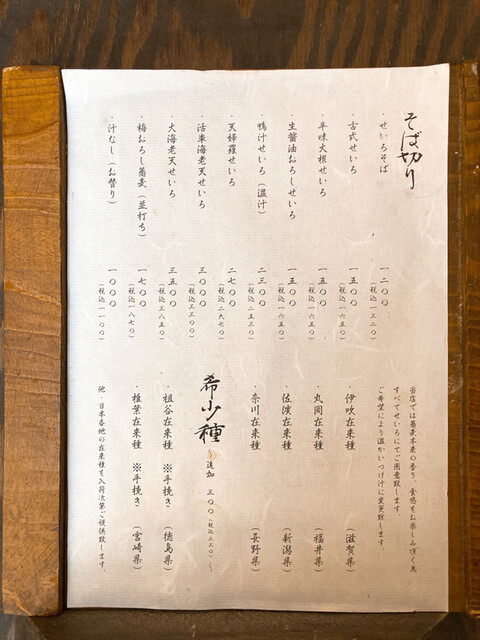 そば切り
・せいろそば 一二〇〇
（税込一三二〇）
・古式せいろ 一五〇〇
（税込一六五〇）
・辛味大根せいろ 一五〇〇
（税込一六五〇）
・生醤油おろしせいろ 一五〇〇
（税込一六五〇）
・鴨汁せいろ（温汁） 二三〇〇
（税込二五三〇）
・天婦羅せいろ 二七〇〇
（税込二九七〇）
・活車海老天せいろ 三〇〇〇
（税込三三〇〇）
・大海老天せいろ 三五〇〇
（税込三八五〇）
・梅おろし蕎麦（並打ち） 一七〇〇
（税込一八七〇）
・汁むし（お替り） 一〇〇〇
（税込一一〇〇）
当店では蕎麦本来の香り、食感をお楽しみ頂く為
すべてせいろにてご用意致します。
ご希望により温かいつけ汁に変更致します。
・伊吹在来種 （滋賀県）
・丸岡在来種 （福井県）
・佐渡在来種 （新潟県）
・奈川在来種 （長野県）
希少種 〜追加 三〇〇（税込三三〇）〜
・祖谷在来種 ※手挽き （徳島県）
・椎葉在来種 ※手挽き （宮崎県）
他・日本各地の在来種を入荷次第ご提供致します。